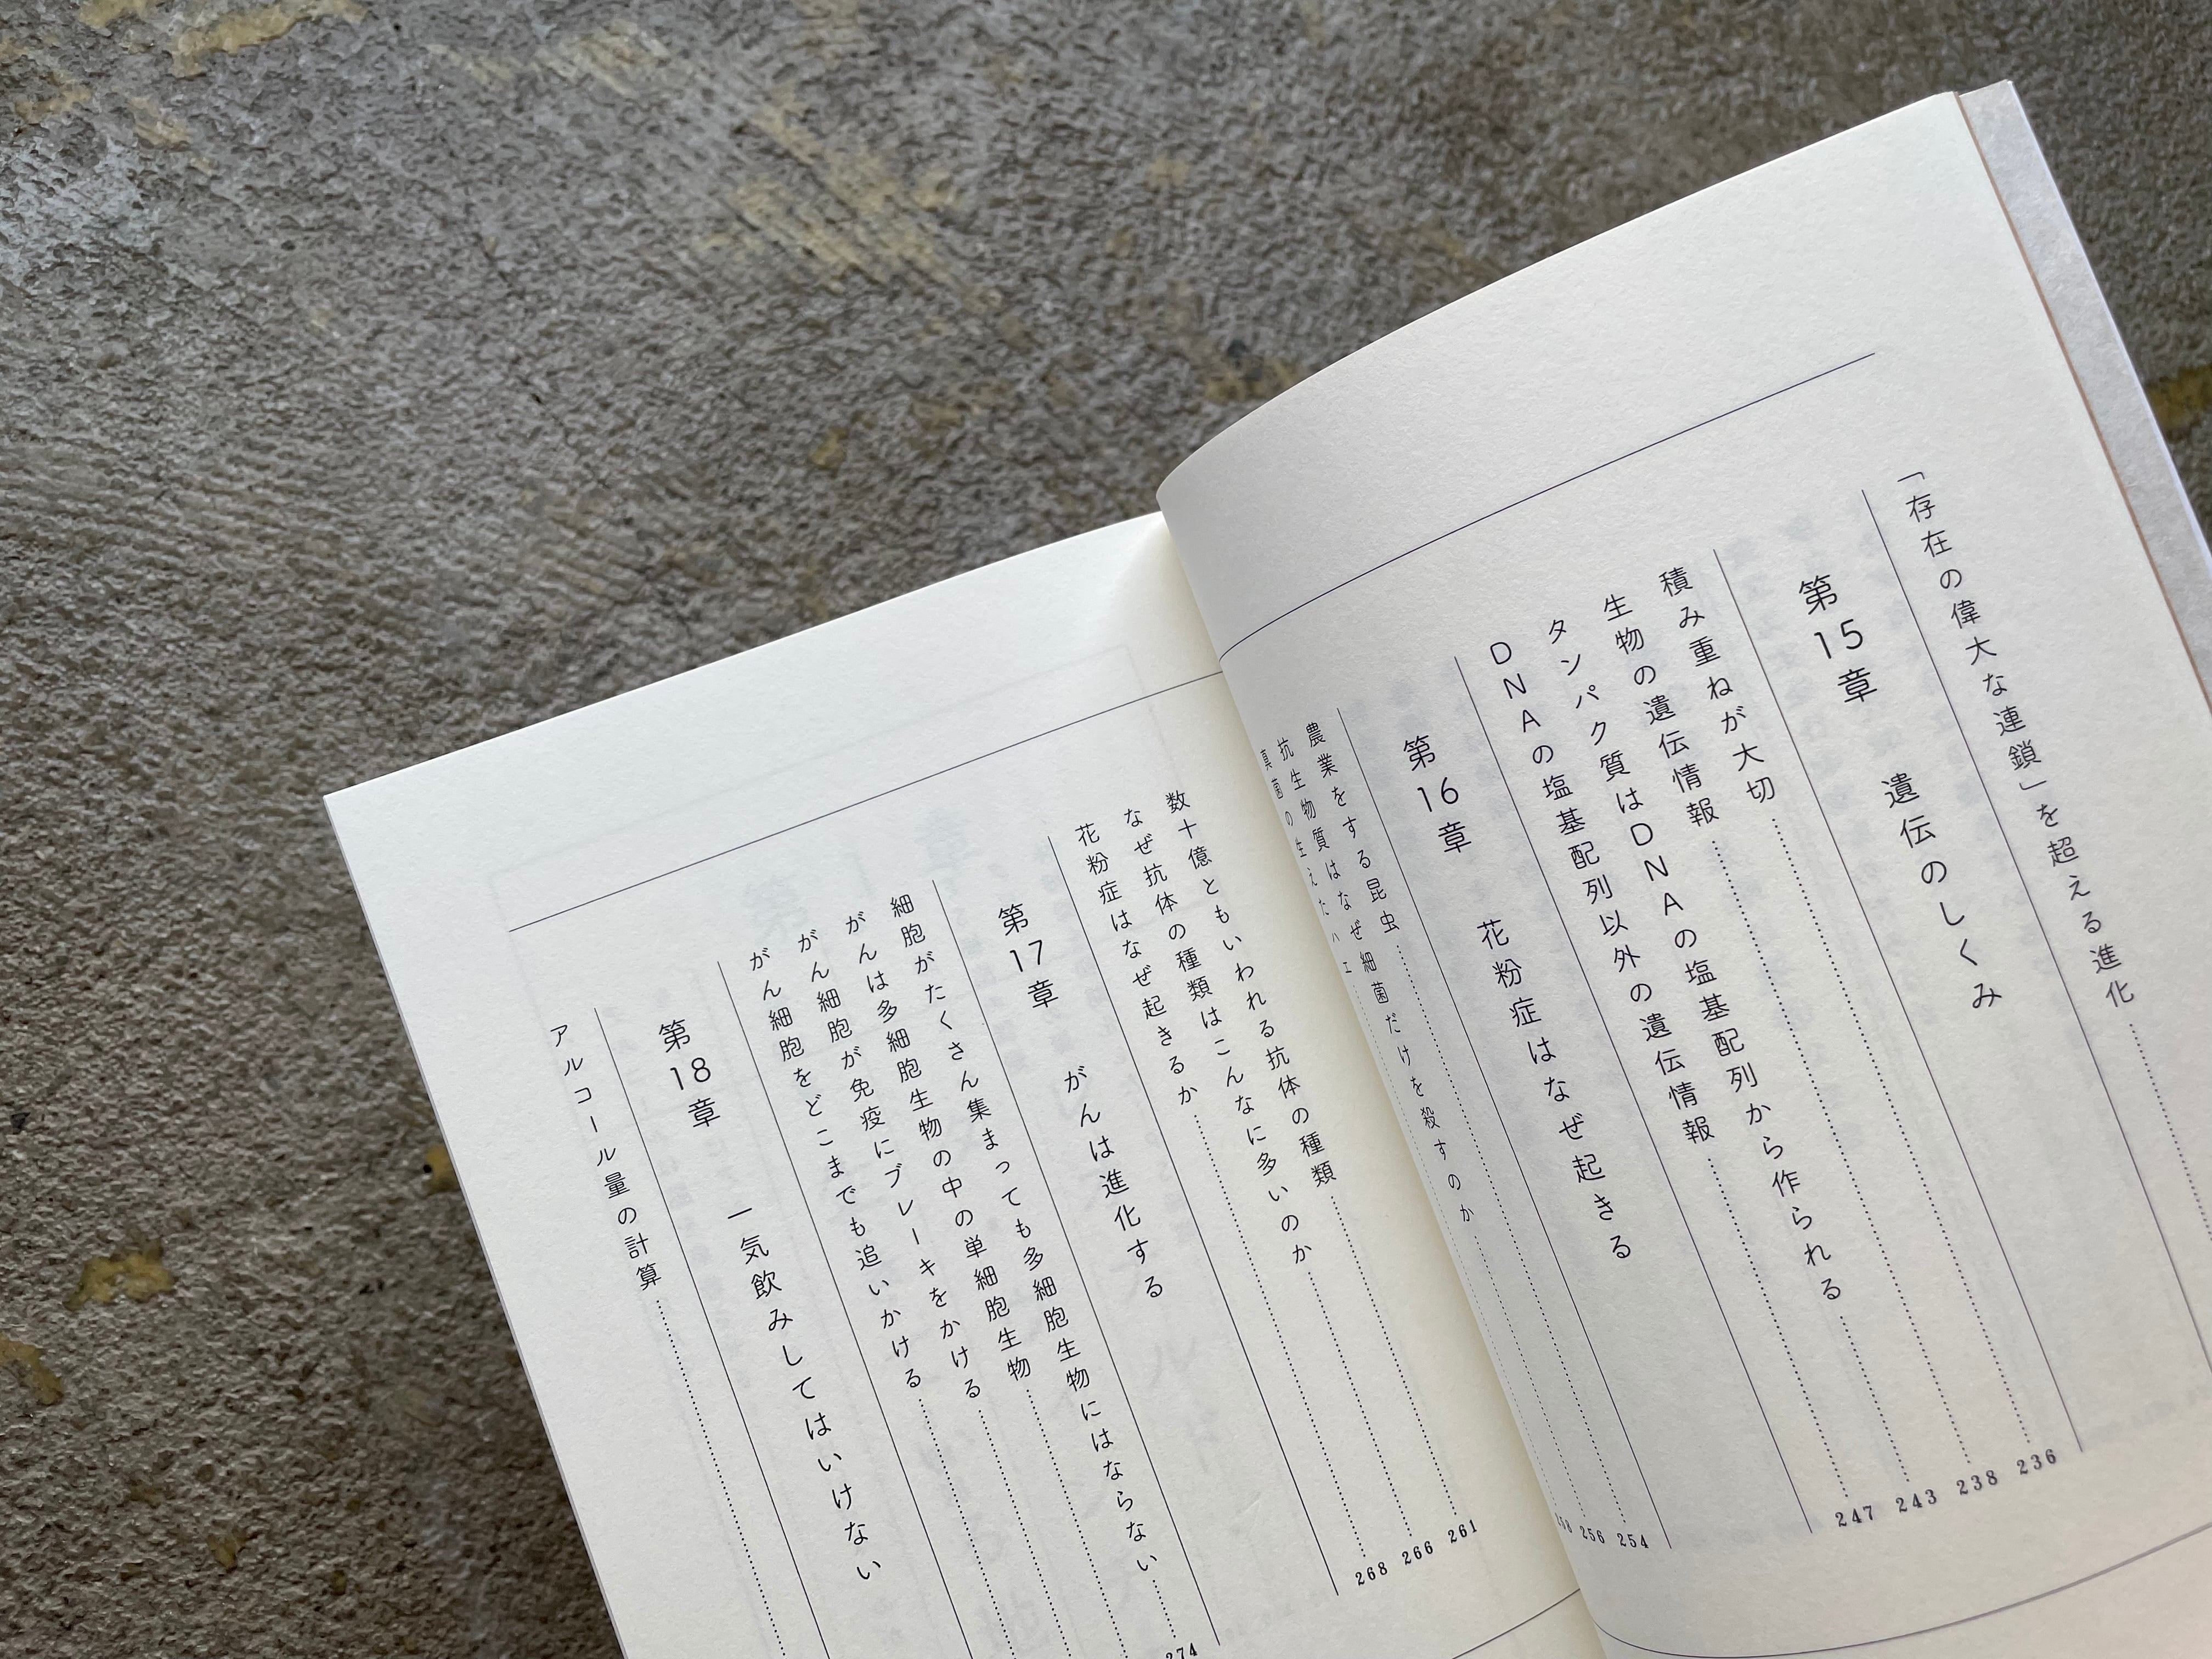 「存在の偉大な連鎖」を超える進化
第15章 遺伝のしくみ
積み重ねが大切 236
生物の遺伝情報 238
タンパク質はDNAの塩基配列から作られる 243
DNAの塩基配列以外の遺伝情報 247
第16章 花粉症はなぜ起きる
農業をする昆虫 254
抗生物質はなぜ細菌だけを殺すのか 256
真菌の生えたハエ
数十億ともいわれる抗体の種類 261
なぜ抗体の種類はこんなに多いのか 266
花粉症はなぜ起きるか 268
第17章 がんは進化する
細胞がたくさん集まっても多細胞生物にはならない 274
がんは多細胞生物の中の単細胞生物
がん細胞が免疫にブレーキをかける
がん細胞をどこまでも追いかける
第18章 一気飲みしてはいけない
アルコール量の計算